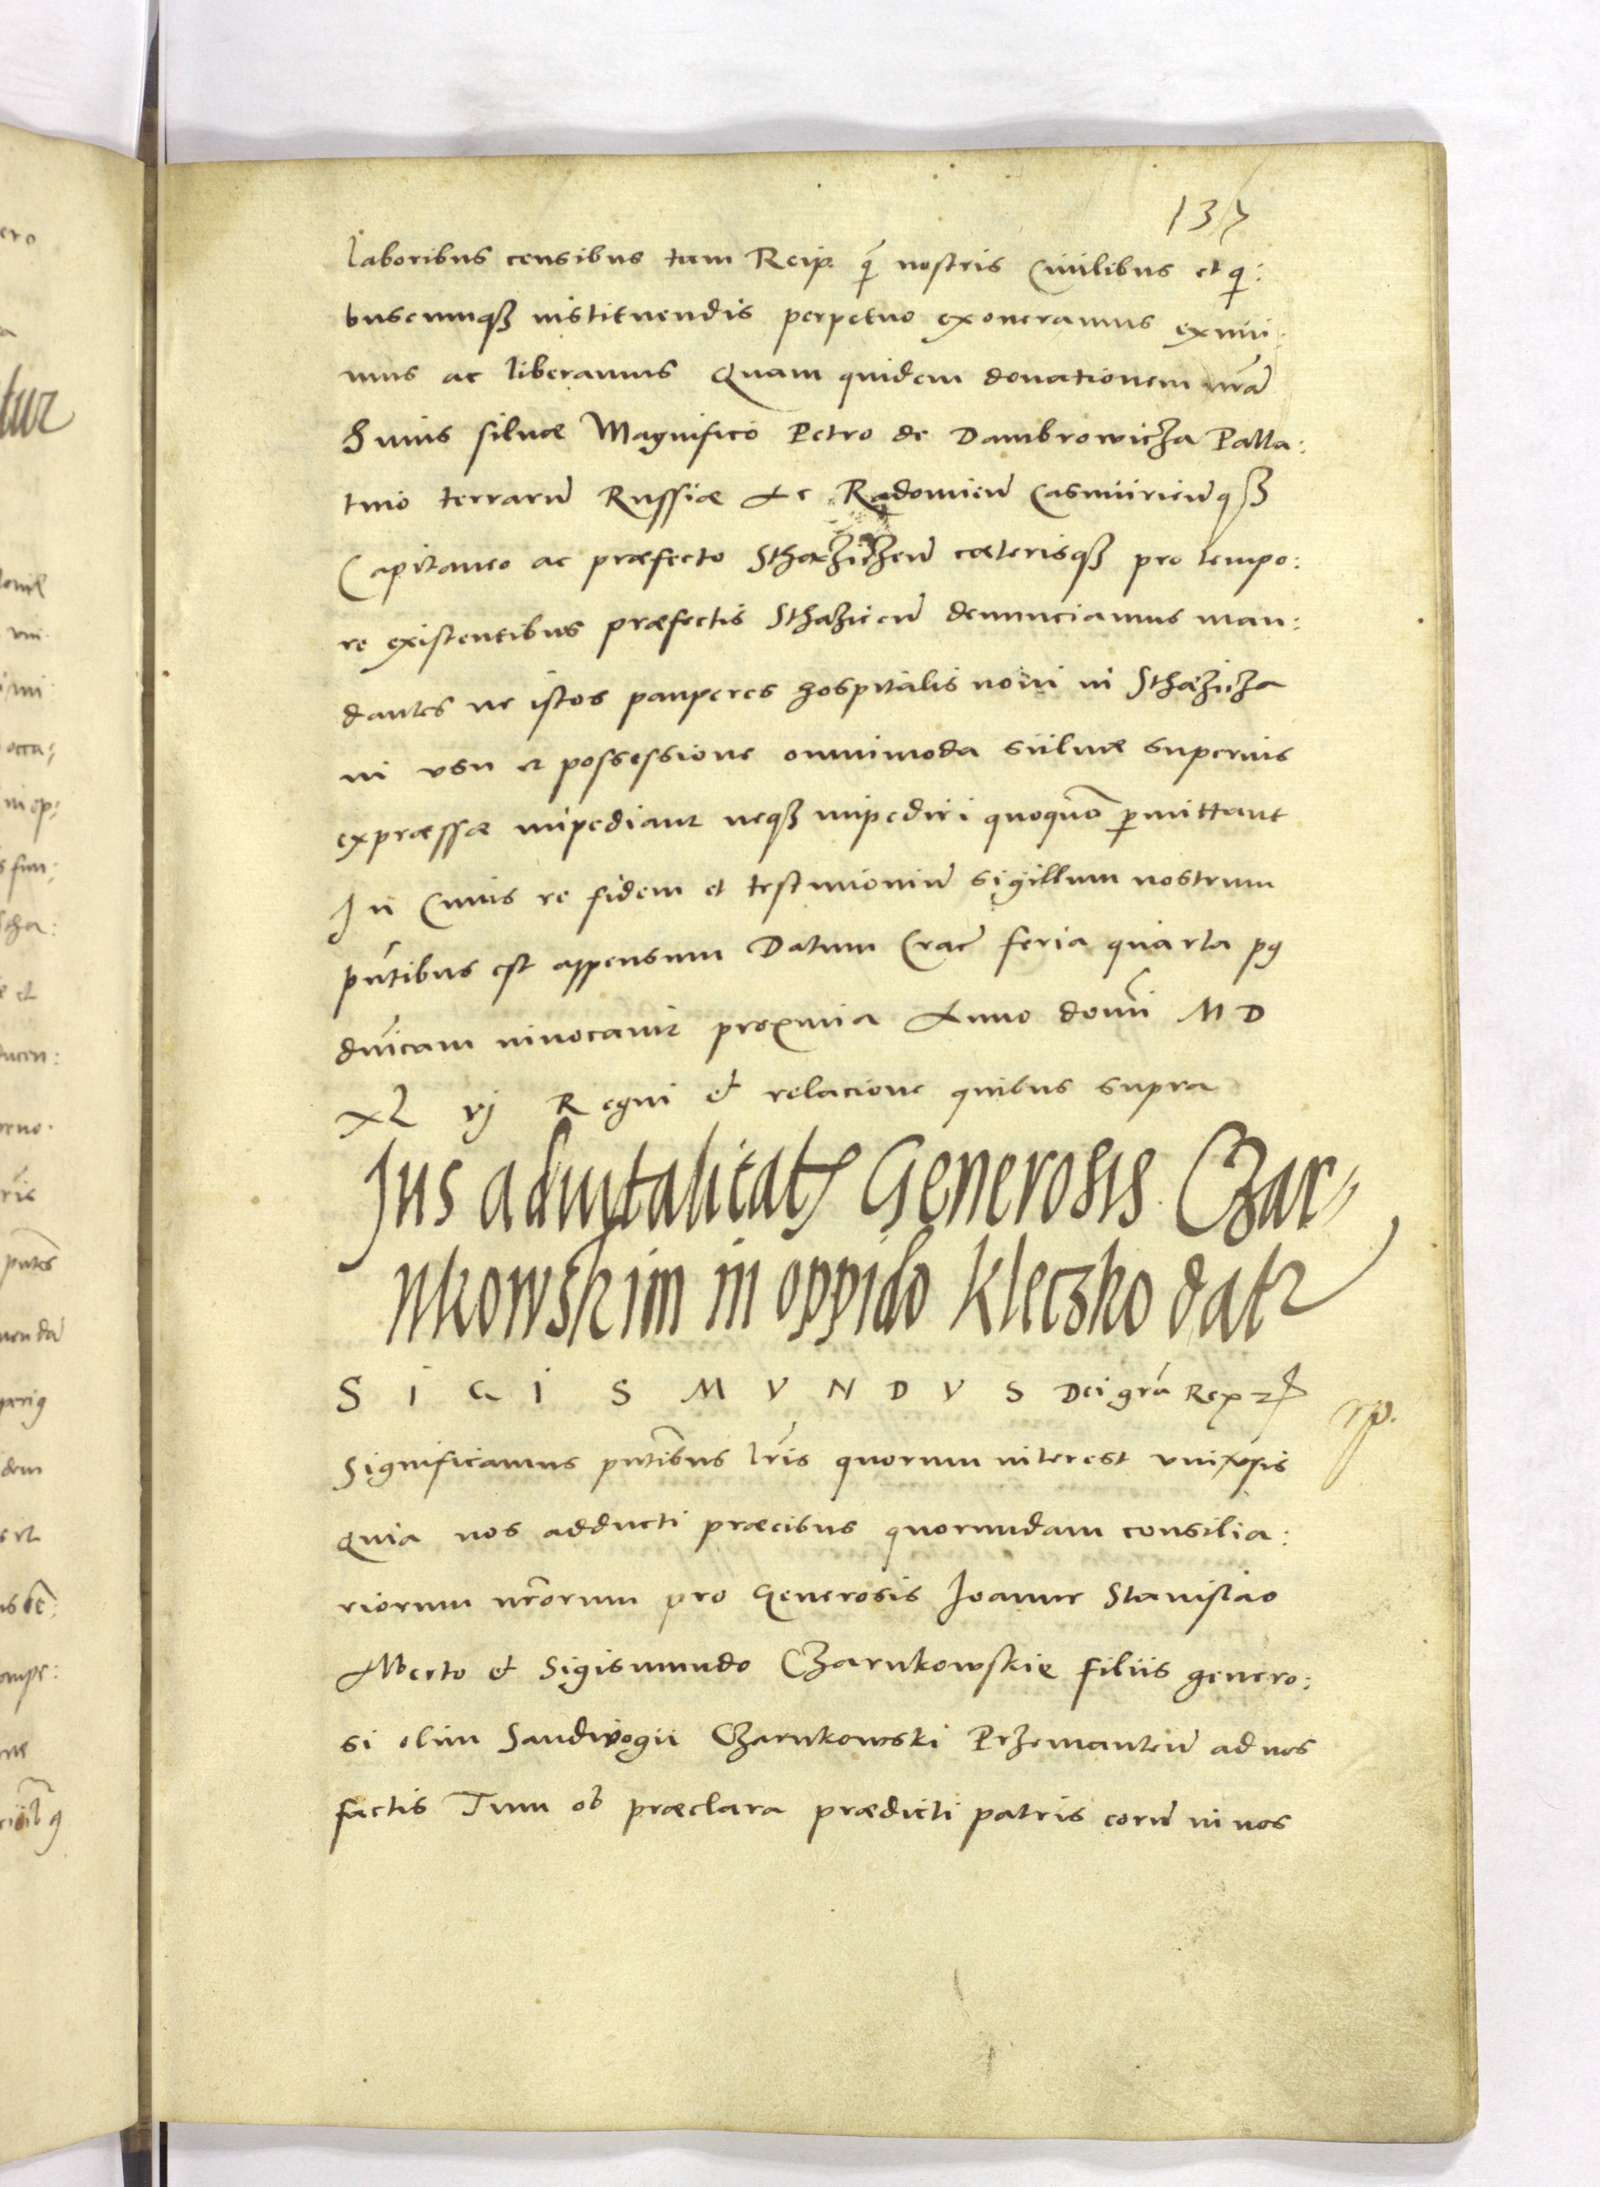 137
laboribus censibus tam Reip. q̃ nostris Civilibus et qͥ:
buscumqȝ instituendis perpetuo exoneramus eximi:
mus ac liberamus Quam quidem donationem nr̃a
Huius siluæ Magnifico Petro de Dambrowicza Palla:
tino terrarũ Russiæ &c Radomieñ Casmiricñqȝ
Capitaneo ac præfecto Sthæziczeñ cæterisqȝ pro tempo:
re existentibus præfectis Sthæziceñ denunciamus man:
dantes ne istos pauperes hospitalis noui in Sthæzicza
in vsu et possessione omnimoda siiluæ superius
expræssæ impediant neqȝ impediri quoquõ ꝑmittant
In Cuius re fidem et testimoniũ sigillum nostrum
pñtibus est appensum Datum Crac̃ feria quarta p9
dñicam inuocauit proxima Anno domĩ M D
XL vj Regni & relacione quibus supra
Jus aduitalitatꝭ Generosis Czar
nkowskim in oppido Kleczko dat᷑
S I G I S M V N D V S Dei gr̃a Rex
Significamus pñtibus lr̃is quorum interest vniũsis
quia nos adducti præcibus quorundam consilia:
riorum nr̃orum pro Generosis Joanne Stanislao
Alberto & Sigismundo Czarnkowskie filiis genero:
si olim Sandiuogii Czarnkowski Przemanteñ ad nos
factis Tum ob præclara prædicti patris eorũ in nos